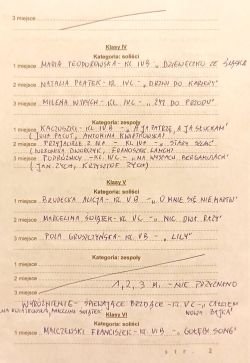 3 miejsce
Klasy IV
Kategoria: soliści
1 miejsce MARIA TEODOROWSKA - KL IV B - „DZIEWECZKO ZE ŚLĄSKA
2 miejsce NATALIA PŁATEK - KL IV C - „DRZWI DO KARIERY
3 miejsce MILENA WYPYCH - KL IV C - „ŻYJ DO PRZODU
Kategoria: zespoły
1 miejsce KACZUSZKI - KL IV B - „A JA PATRZĘ, A JA SŁUCHAM
JULIA PACUT, ANTONINA KWIATKOWSKA)
2 miejsce PRZYJACIELE Z - KL IV A - „STARY NIEDŹ
FRANCISZEK
3 miejsce PODRÓŻNIKY - KL IV C - „NA WYSPACH BERGAMUTACH
(JAN ZYCH, KRZYSZTOF ZYCH)
Klasy V
Kategoria: soliści
1 miejsce ALICJA - KL V B - „O MNIE SIĘ NIE MARTW
2 miejsce MARCELINA ŚWIĄTEK - KL V C - „NIC DWA RAZY
3 miejsce POLA - KL V B - „LILY"
Kategoria: zespoły
1 miejsce
2 miejsce 1, 2, 3 M. - NIE PRZYZNANO
3 miejsce
WYRÓŻNIENIE - ŚPIEWAJĄCE - KL V C - „CAŁKIEM
MARCELINA ŚWIĄTEK NOWA BAJKA"
Klasy VI
Kategoria: soliści
1 miejsce MALCZEWSKI FRANCISZEK - KL VI B - „GOŁĘBI SONG"
2